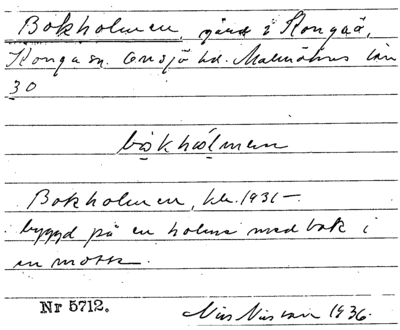 Bokholmen, gård i Konga å,
Konga sn. Onsjö hd. Malmöhus län
30
bǫkhǫlmen
Bokholmen, kla. 1931–
byggd på en holme med bok i
en mosse.
Nr 5712. Nils Nilsson 1936.